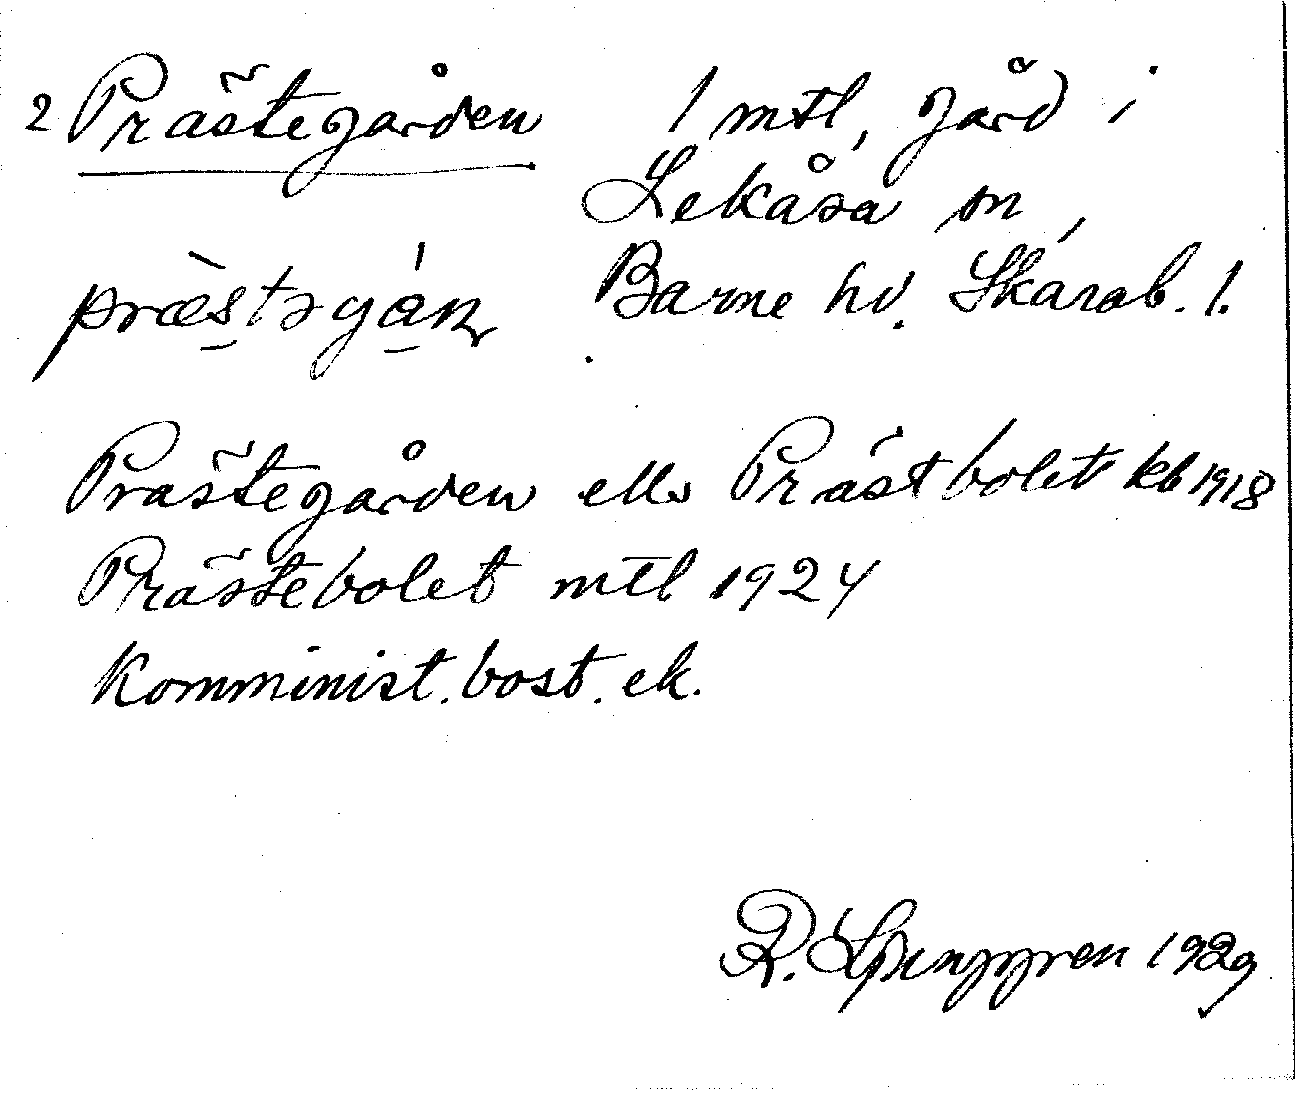 2 Prästegården 1 mtl, gård i
Lekåsa sn,
præ̀stəgán Barne hd. Skarab. l.
Prästegården ell. Prästbolet kb 1918
Prästebolet mtl 1924
Komminist. bost. ek.
R. Ljunggren 1929